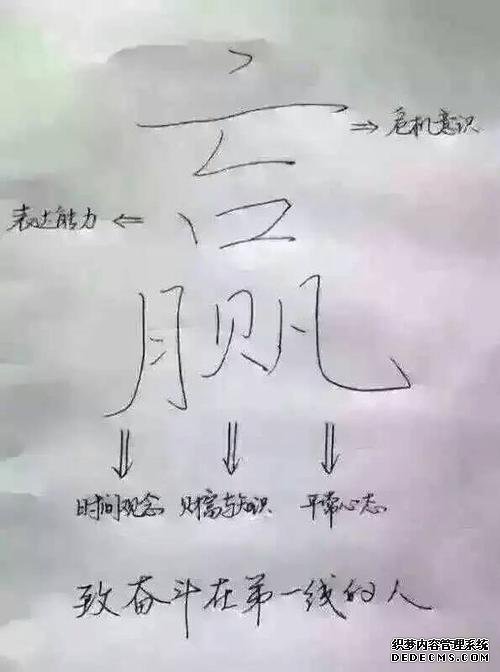 赢
⇒ 危机意识
表达能力 ⇐
时间观念 财富与知识 平常心态
致奋斗在第一线的人
织梦内容管理系统
DEDECMS.COM